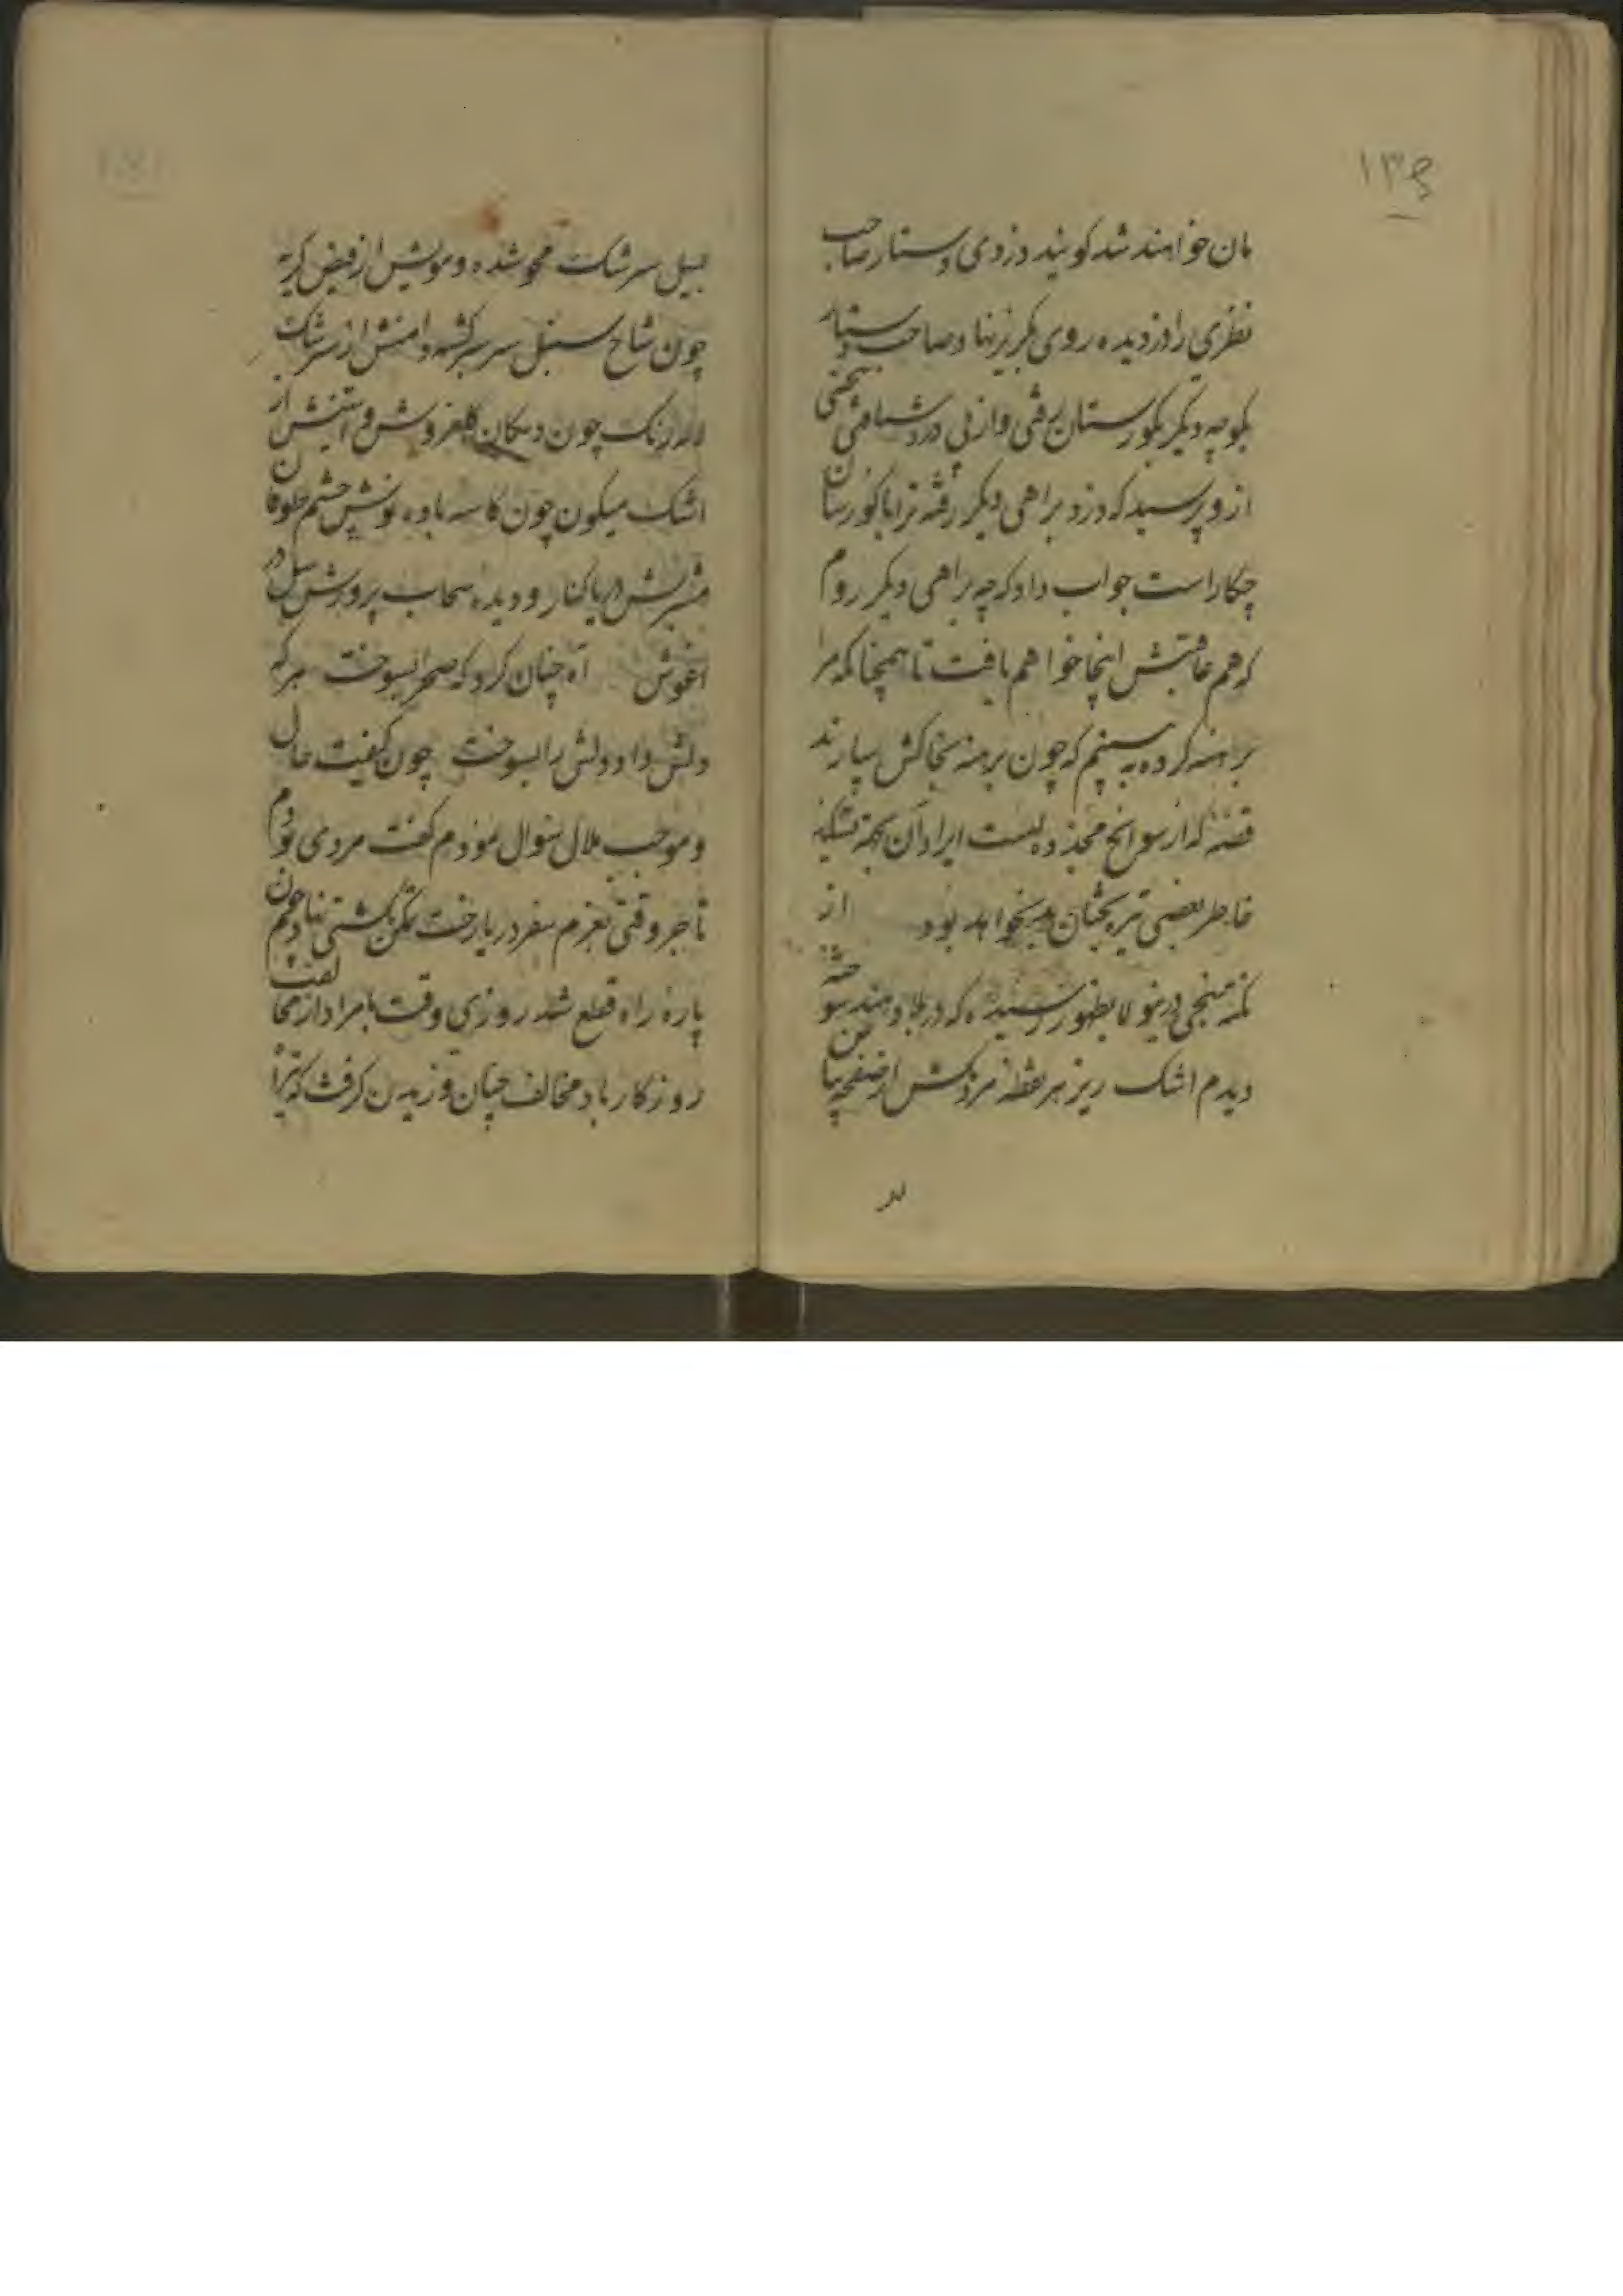 ۱۳۶
مان خواهند شد کویند دزدی دستار صاحب
نظری را دزدیده روی بکریز نهاد صاحب دستار
بکوچه دیکر بکورستان رفتی و از پی دزد شتافتی شخصی
ازو پرسید که دزد براهی دیکر رفته ترا با کورستان
چکار است جواب داد که چه براهی دیکر روم
که هم عاقبتش اینجا خواهم یافت تا همچنانکه مرا
برهنه کرده به بینم که چون برهنه بخاکش سپارند
قصهٔ که از سوانح مجذ وبست ایراد آن بجهة تشکیذ
خاطر بعضی تیره بختان بد نخواهد بود از
نکته سنجی درینولا بظهور رسیده که در بلاد هند سوخته
دیدم اشک ریز هر نقطه مردمکش از صفحه بیاض
لد
بسیل سرشک محو شده و مویش از فیض کریه
چون شاخ سنبل سرسبز کشته و دامنش از سرشک
لاله رنک چون دکان کلفروش و آستینش از
اشک میکون چون کاسه باده نوش چشم طوفان
مشربش دریا کنار و دیده سحاب پرورش سیل در
اغوش آه چنان کرد که صحرا بسوخت هر که
دلش داد دلش را بسوخت چون کیفیت حال
و موجب ملال سئوال نمودم کفت مردی بودم
تاجر وقتی بعزم سفر دریا رخت تمکن بکشتی نهادم چون
پارهٔ راه قطع شد روزی وقت بامداد از مخالفت
روزکار باد مخالف چنان وزیدن کرفت که تیر آه